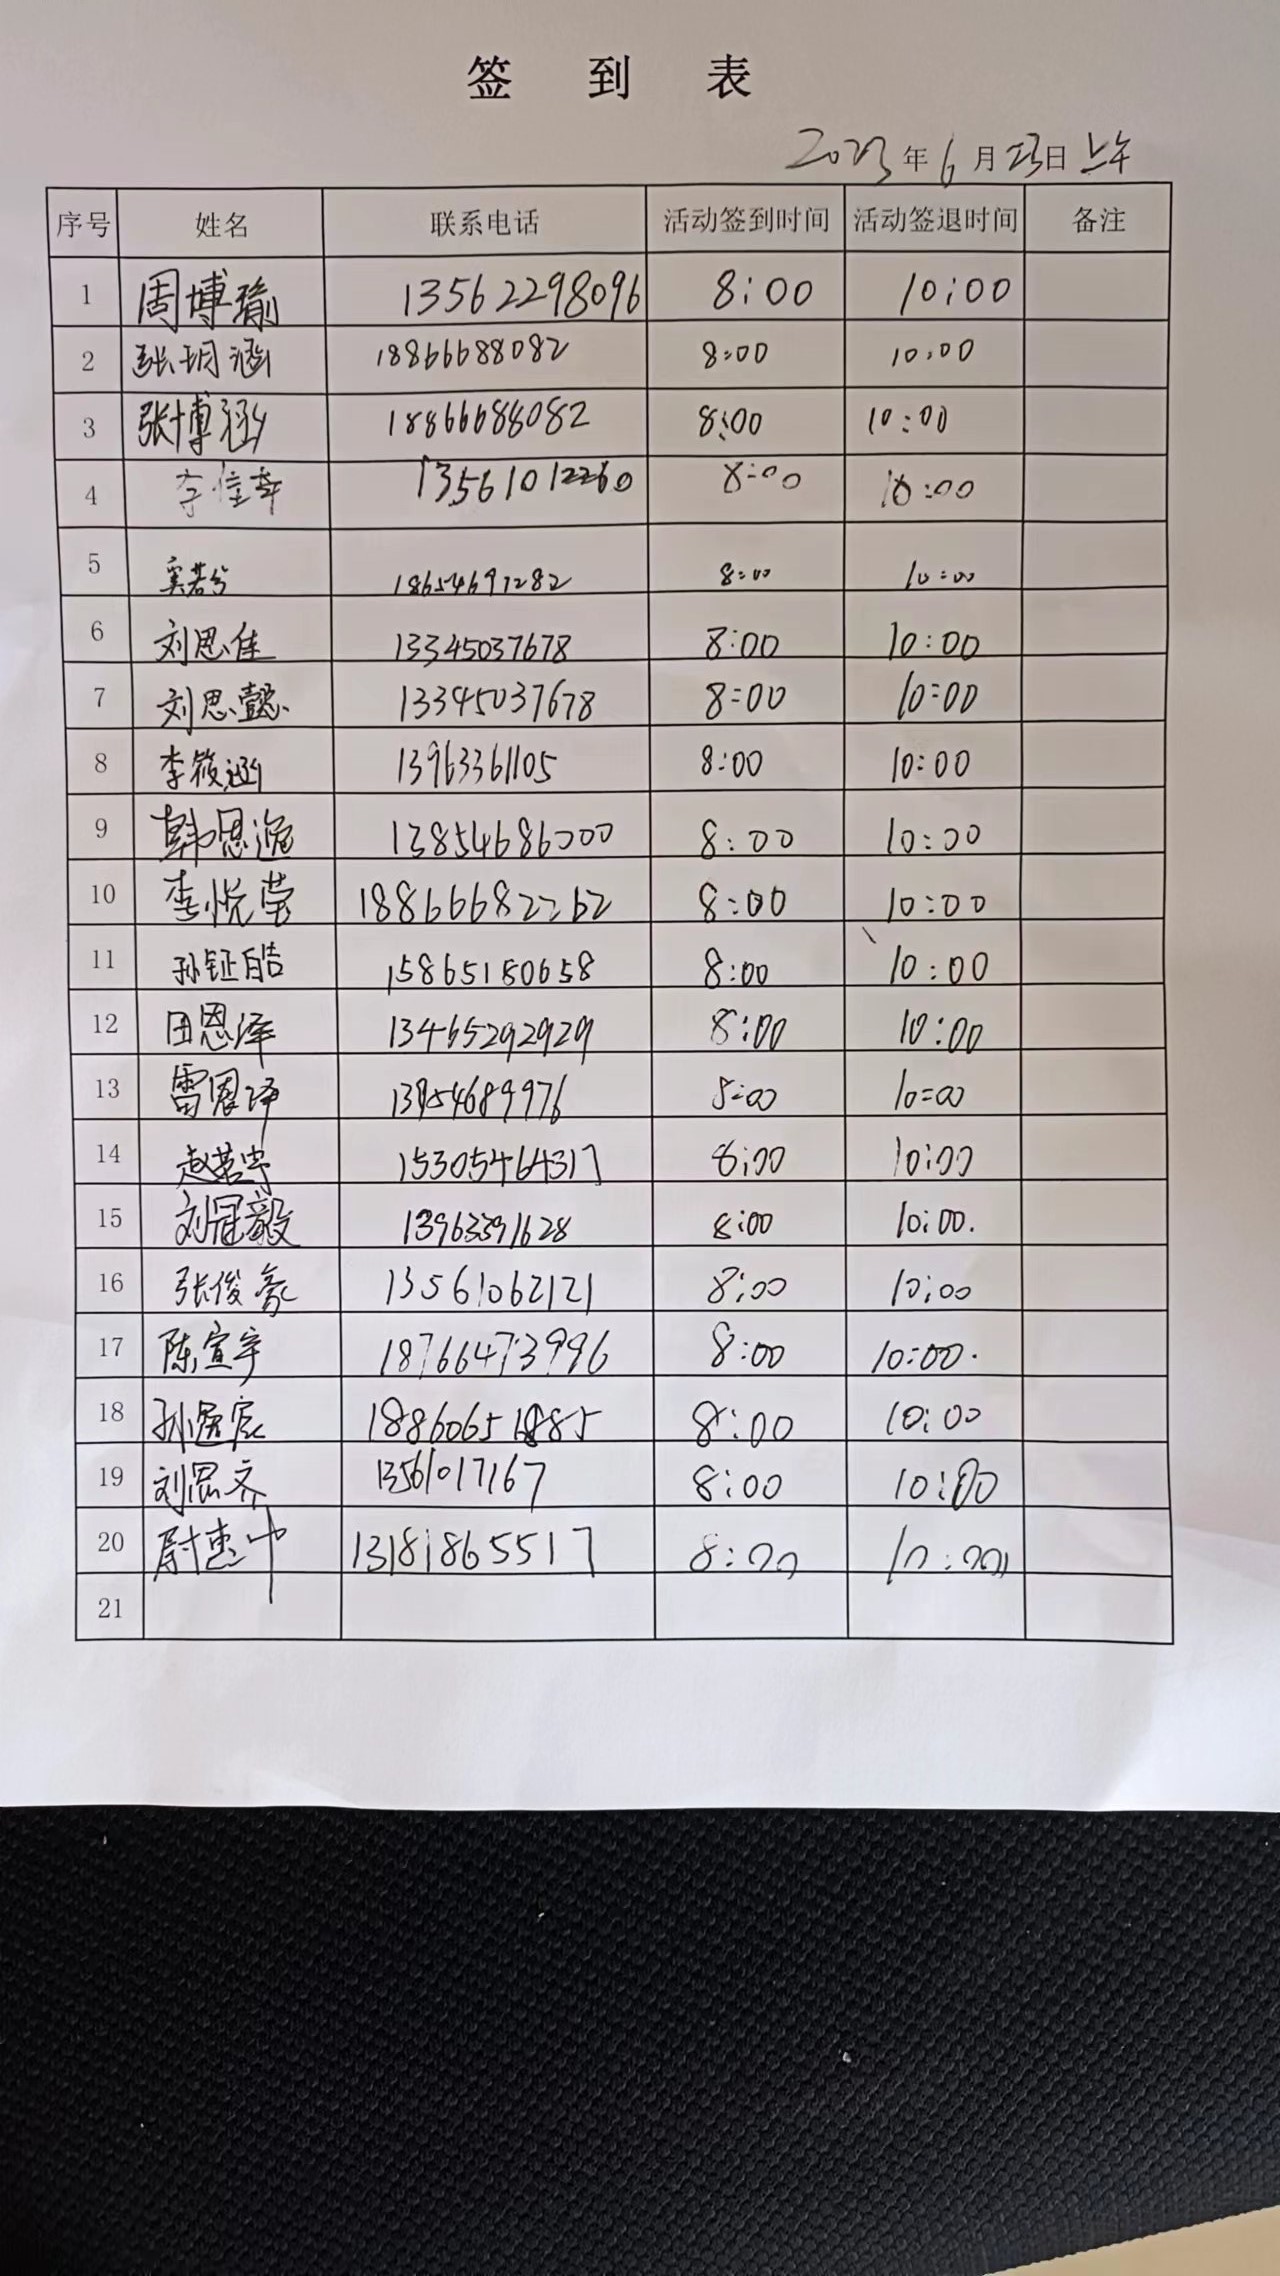 签 到 表
2023年6月23日上午
序号 姓名 联系电话 活动签到时间 活动签退时间 备注
1 周博瑜 13562298096 8:00 10:00
2 张玥涵 18866688082 8:00 10:00
3 张博涵 18866688082 8:00 10:00
4 李佳幸 13561012260 8:00 10:00
5 窦若兮 18654691282 8:00 10:00
6 刘思佳 13345037678 8:00 10:00
7 刘思懿 13345037678 8:00 10:00
8 李筱涵 13963361105 8:00 10:00
9 韩恩逸 13854686000 8:00 10:00
10 李悦莹 18866682262 8:00 10:00
11 孙钲皓 15865180658 8:00 10:00
12 田恩泽 13465292929 8:00 10:00
13 雷恩泽 13954689976 8:00 10:00
14 赵若宇 15305464317 8:00 10:00
15 刘冠毅 13963391628 8:00 10:00.
16 张俊豪 13561062121 8:00 10:00
17 陈宣宇 18766473996 8:00 10:00.
18 孙 宸 8:00 10:00
19 刘思齐 13561017167 8:00 10:00
20 尉惠中 13181865517 8:00 10:00
21